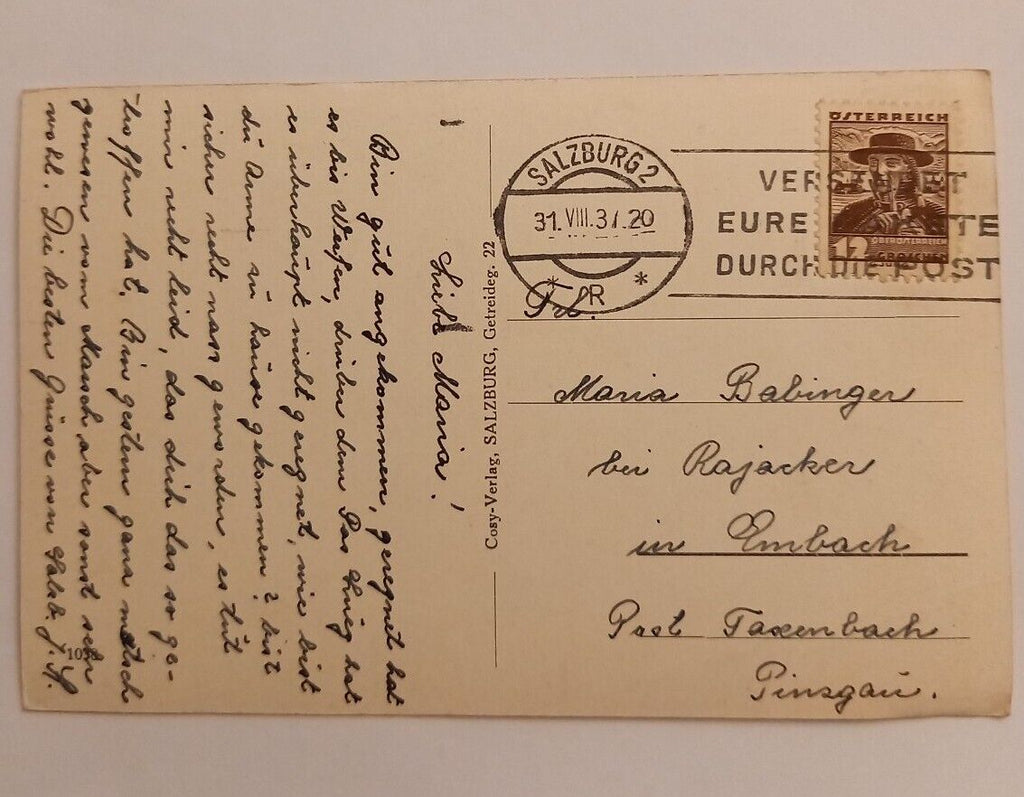 Liebe Maria!
Bin gut angekommen, geregnet hat
es bis Werfen, drüber dem Pas Lueg hat
es überhaupt nicht geregnet, wie bist
du Arme zu hause gekommen? bist
sicher recht nass geworden, es tut
mir recht leid, das dich das so ge-
troffen hat. Bin gestern ganz matsch
gewesen vom Marsch aber sonst sehr
wohl. Die besten Grüsse von Salzb. J. H.
10
Cosy-Verlag, SALZBURG, Getreideg. 22
SALZBURG 2
31.VIII.37.20
* R *
ÖSTERREICH
12
OBERÖSTERREICH
GROSCHEN
EURE
DURCH DIE POST
Frl.
Maria Babinger
bei Rajacker
in Embach
Post Taxenbach
Pinzgau.